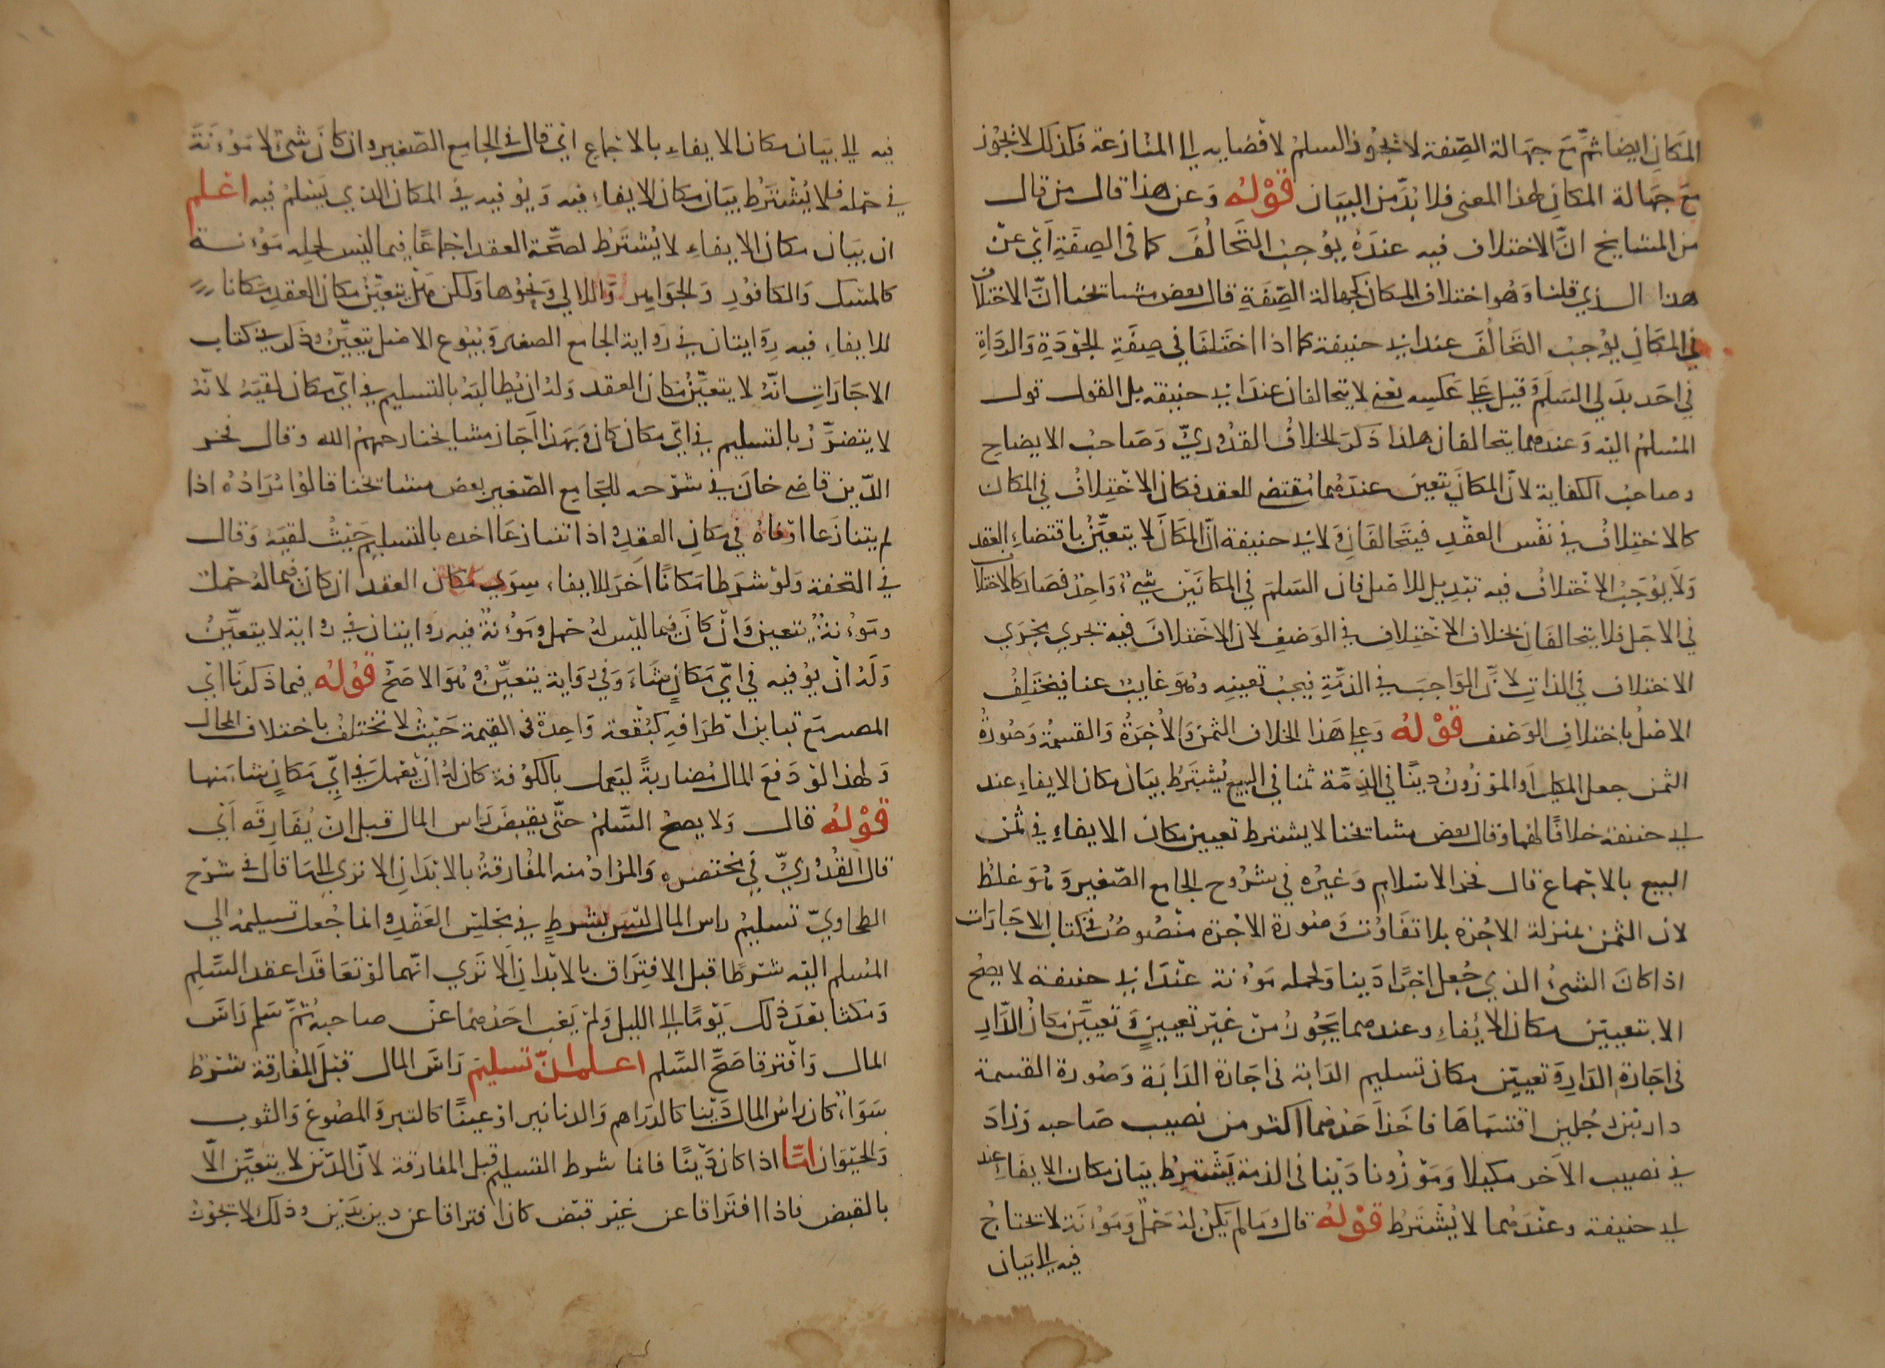 المكان ايضا ثم مع جهالة الصفة لا يجوز السلم لافضايه الى المنازعة فكذلك لا يجوز
مع جهالة المكان لهذا المعنى فلا بد من البيان قوله وعن هذا قال من قال
من المشايخ ان الاختلاف فيه عنده يوجب التحالف كما في الصفة اي عن
هذا الذي قلنا وهو اختلاف المكان كجهالة الصفة قال بعض مشايخنا ان الاختلاف
في المكان يوجب التحالف عند ابي حنيفة كما اذا اختلفا في صفة الجودة والرداة
في احد بدلي السلم وقيل على عكسه يعني لا يتحالفان عند ابي حنيفة بل القول قول
المسلم اليه وعندهما يتحالفان هكذا ذكر الخلاف القدوري وصاحب الايضاح
وصاحب الكفاية لان المكان تعين عندهما مقتضى للعقد فكان الاختلاف في المكان
كالاختلاف في نفس العقد فيتحالفان ولابي حنيفة ان المكان لا يتعين باقتضاء العقد
ولا يوجب الاختلاف فيه تبديل للاصل فان السلم في المكانين شيء واحد فصار كالاختلاف
في الاجل فلا يتحالفان بخلاف الاختلاف في الوصف لان الاختلاف فيه يجري مجرى
الاختلاف في الذات لان الواجب في الذمة يجب تعيينه وهو غايب عنا فيختلف
الاصل باختلاف الوصف قوله وعلى هذا الخلاف الثمن والاجرة والقسمة وصورة
الثمن جعل المكيل او الموزون دينا في الذمة ثمنا في البيع يشترط بيان مكان الايفاء عند
ابي حنيفة خلافا لهما وقال بعض مشايخنا لا يشترط تعيين مكان الايفاء في ثمن
البيع بالاجماع قال فخر الاسلام وغيره في شروح الجامع الصغير وهو غلط
لان الثمن بمنزلة الاجرة بلا تفاوت وصورة الاجرة منصوص في كتاب الاجارات
اذا كان الشيء الذي جعل اجرا دينا ولحمله مؤنة عند ابي حنيفة لا يصح
الا بتعيين مكان الايفاء وعندهما يجوز من غير تعيين وتعيين مكان الدار
في اجارة الدار وتعيين مكان تسليم الدابة في اجارة الدابة وصورة القسمة
دار بين رجلين اقتسماها فاخذ احدهما اكثر من نصيب صاحبه وزاد
في نصيب الاخر مكيلا وموزونا دينا في الذمة يشترط بيان مكان الايفاء عند
ابي حنيفة وعندهما لا يشترط قوله قال وما لم يكن له حمل ومؤنة لا يحتاج
فيه الى بيان
فيه الى بيان مكان الايفاء بالاجماع اي قال في الجامع الصغير وان كان شيء لا مؤنة
في حمله فلا يشترط بيان مكان الايفاء فيه ويوفيه في المكان الذي يسلم فيه اعلم
ان بيان مكان الايفاء لا يشترط لصحة العقد اجماعا فيما ليس لحمله مؤنة
كالمسك والكافور والجواهر واللالي ونحوها ولكن هل يتعين مكان العقد مكانا
للايفاء فيه روايتان في رواية الجامع الصغير وبيوع الاصل يتعين وذكر في كتاب
الاجارات انه لا يتعين مكان العقد وله ان يطالبه بالتسليم في اي مكان لقيه لانه
لا يتضرر بالتسليم في اي مكان كان وبهذا اجاز مشايخنا رحمهم الله وقال فخر
الدين قاضي خان في شرحه للجامع الصغير بعض مشايخنا قالوا مراده اذا
لم يتنازعا اوفاه في مكان العقد واذا تنازعا اخده بالتسليم حيث لقيه وقال
في التحفة ولو شرطا مكانا اخر للايفاء سوى مكان العقد ان كان فيما له حمل
ومؤنة يتعين وان كان فيما ليس له حمل ومؤنة فيه روايتان في رواية لا يتعين
وله ان يوفيه في اي مكان شاء وفي رواية يتعين وهو الاصح قوله فيما ذكرنا اي
المصر مع تباين اطرافه كبقعة واحدة في القيمة حيث لا تختلف باختلاف المحال
ولهذا لو دفع المال مضاربة ليعمل بالكوفة كان له ان يعمل في اي مكان شاء منها
قوله قال ولا يصح السلم حتى يقبض راس المال قبل ان يفارقه اي
قال القدوري في مختصره والمراد منه المفارقة بالابدان الا ترى الى ما قال في شرح
الطحاوي تسليم راس المال ليس بشرط في مجلس العقد وانما جعل تسليمه الى
المسلم اليه شرطا قبل الافتراق بالابدان الا ترى انهما لو تعاقدا عقد السلم
ومكثا بعد ذلك يوما الى الليل ولم يغب احدهما عن صاحبه ثم سلم راس
المال وافترقا صح السلم اعلم ان تسليم راس المال قبل المفارقة شرط
سواء كان راس المال دينا كالدراهم والدنانير او عينا كالتبر والمصوغ والثوب
والحيوان اما اذا كان دينا فانما شرط التسليم قبل المفارقة لان الدين لا يتعين الا
بالقبض فاذا افترقا عن غير قبض كان افتراقا عن دين بدين وذلك لا يجوز